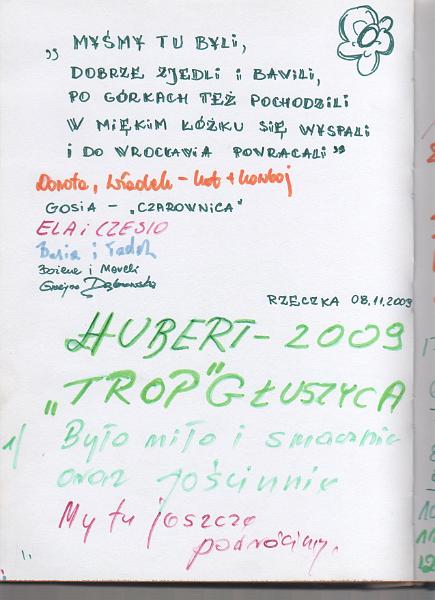 „ MYŚMY TU BYLI,
DOBRZE ZJEDLI I BAWILI,
PO GÓRKACH TEŻ POCHODZILI
W MIĘKIM ŁÓŻKU SIĘ WYSPALI
I DO WROCŁAWIA POWRACALI ”
Dorota, Władek – kot + kowboj
GOSIA – „CZAROWNICA"
ELA i CZESIO
Basia i Tadek
Bożena i Marek
Grażyna Dąbrowska
RZECZKA 08.11.2009
HUBERT – 2009
„TROP" GŁUSZYCA
1/ Było miło i smacznie
oraz gościnnie
My tu jeszcze
podrócimy.